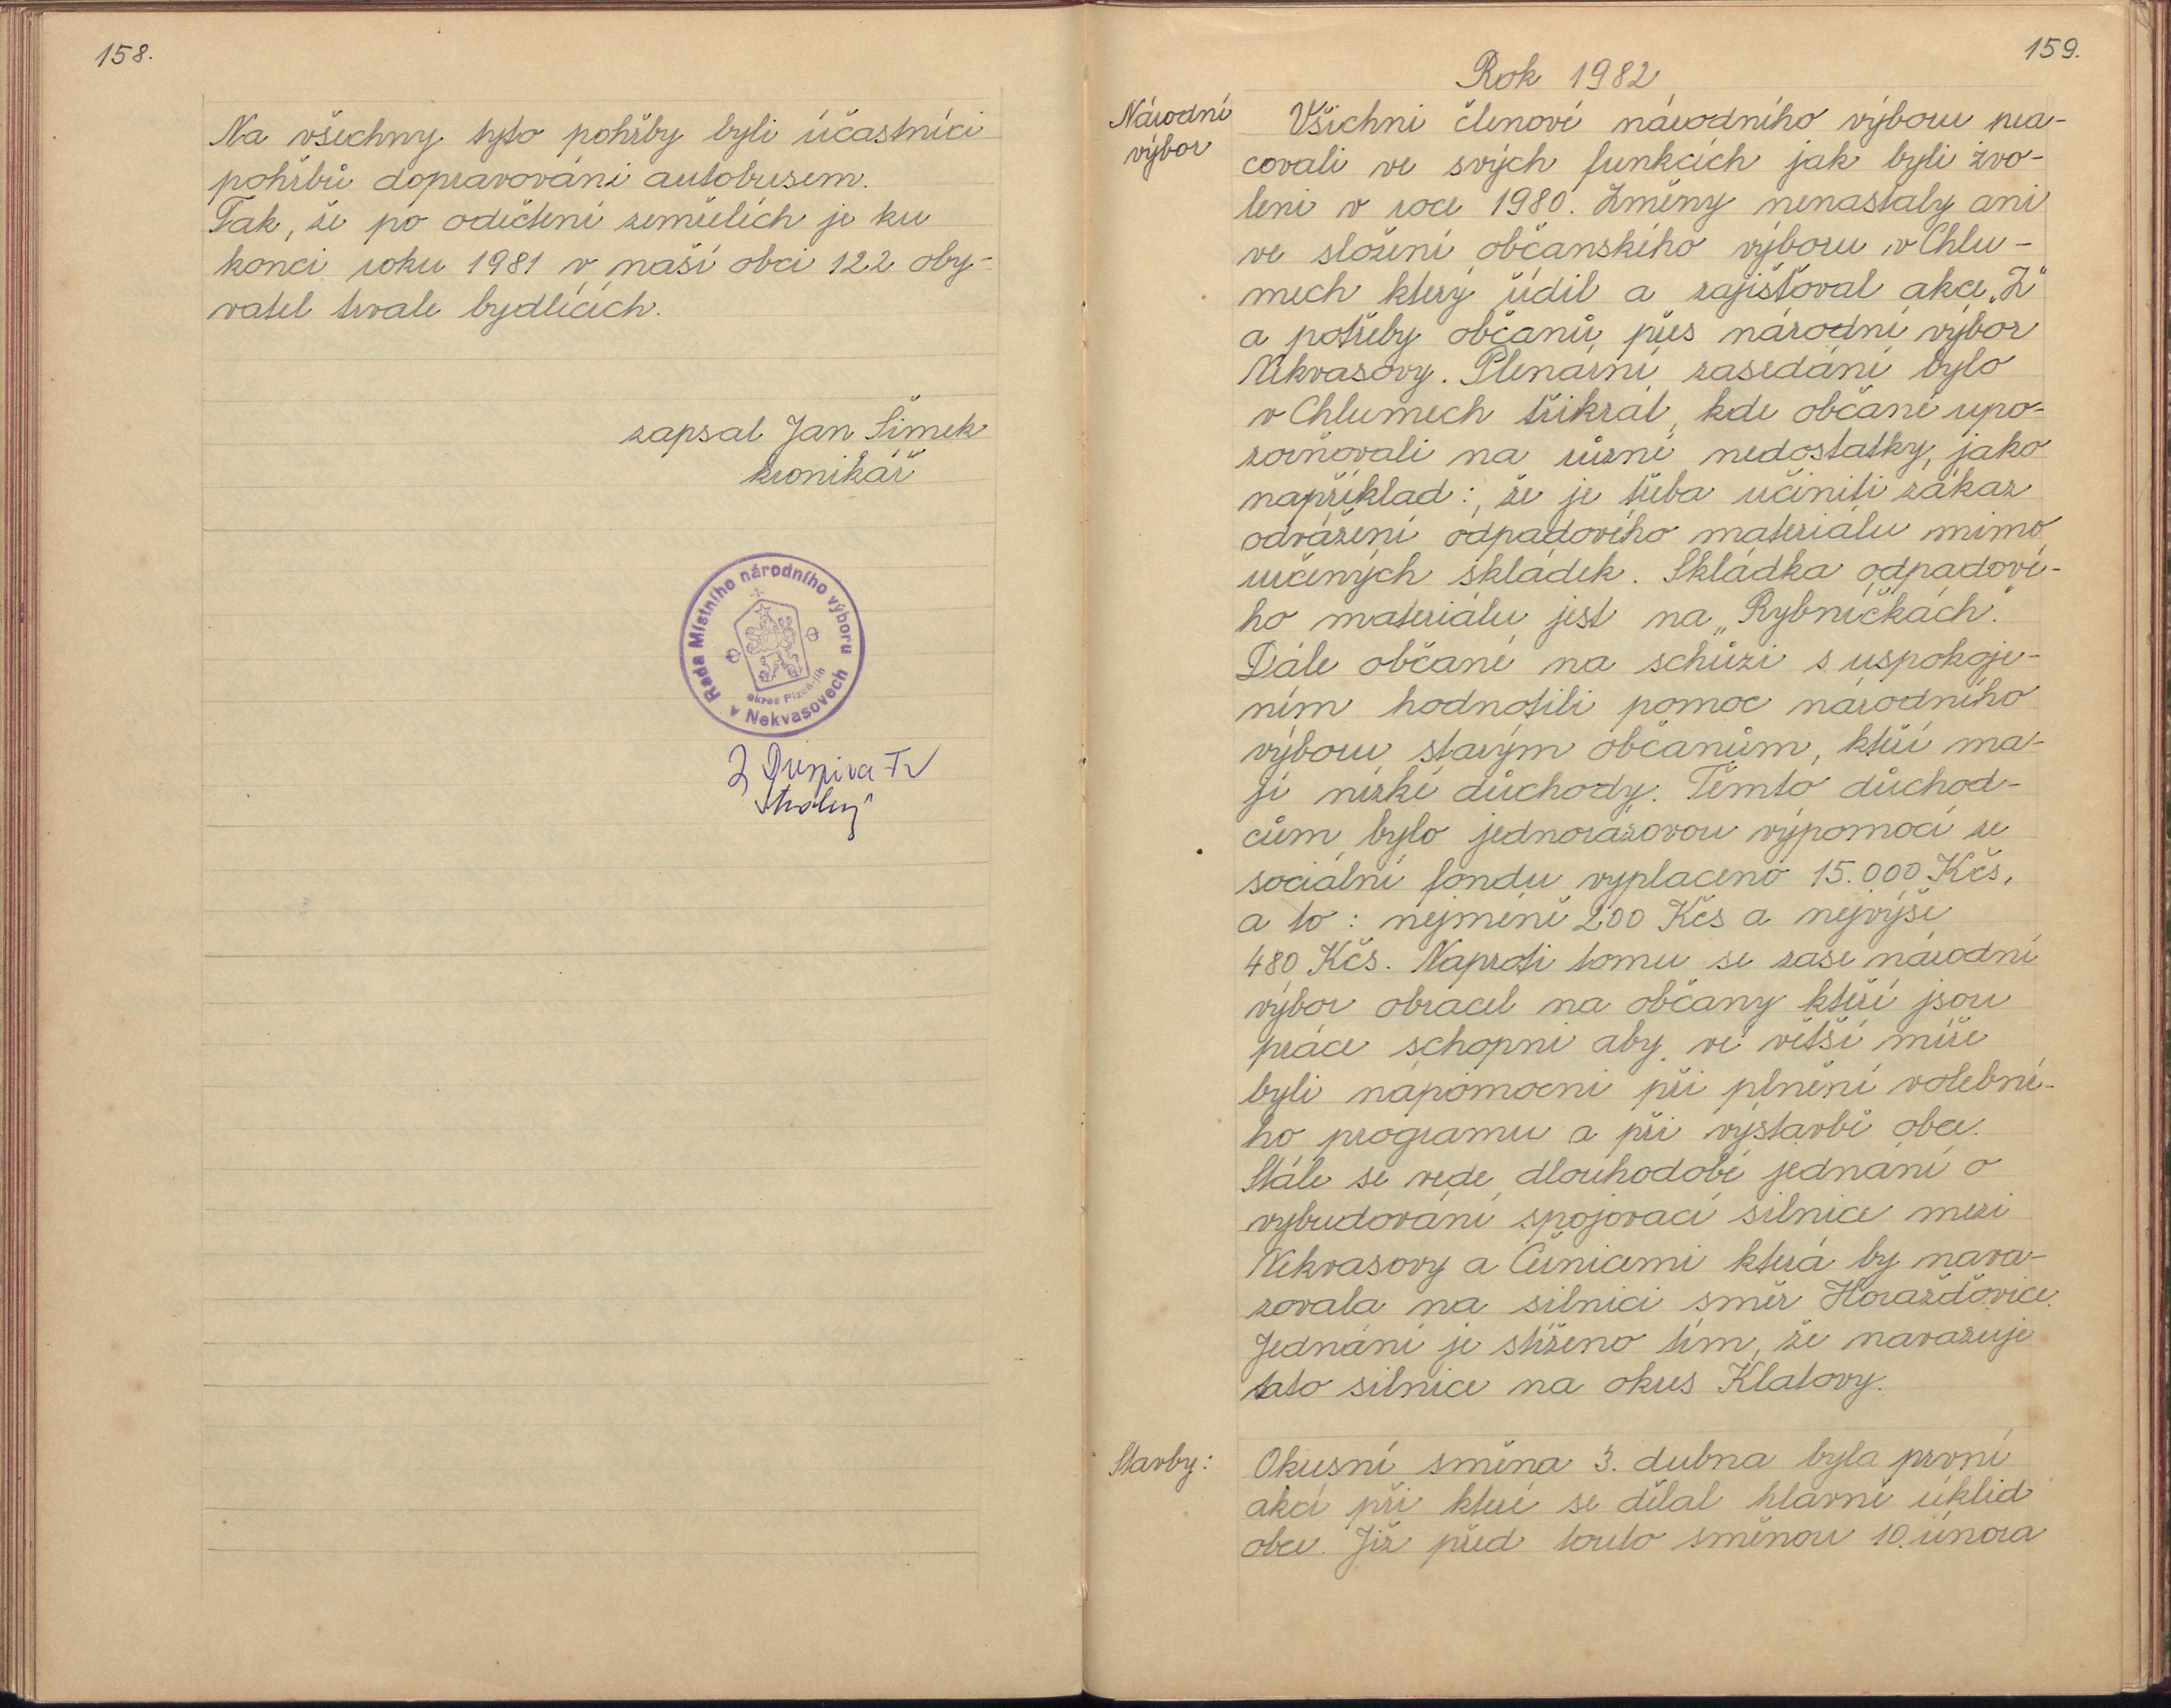 158.
Na všechny tyto pohřby byli účastníci
pohřbů dopravováni autobusem.
Tak, že po odečtení zemřelích je ku
konci roku 1981 v naší obci 122 oby-
vatel trvale bydlících.
zapsal Jan Šimek
kronikář
Rada Místního národního výboru
okres Plzeň-jih
v Nekvasovech
159.
Rok 1982
Národní
výbor
Všichni členové národního výboru pra-
covali ve svých funkcích jak byli zvo-
leni v roce 1980. Změny nenastaly ani
ve složení občanského výboru v Chlu-
mech který řídil a zajišťoval akce „Z"
a potřeby občanů přes národní výbor
Nekvasovy. Plenární zasedání bylo
v Chlumech třikrát, kde občané upo-
zorňovali na různé nedostatky, jako
například:, že je třeba učiniti zákaz
odvážení odpadového materiálu mimo
určených skládek. Skládka odpadové-
ho materiálu jest na „Rybníčkách."
Dále občané na schůzi s uspokoje-
ním hodnotili pomoc národního
výboru starým občanům, kteří ma-
jí nízké důchody. Těmto důchod-
cům bylo jednorázovou výpomocí ze
sociální fondu vyplaceno 15.000 Kčs,
a to: nejméně 200 Kčs a nejvýše
480 Kčs. Naproti tomu se zase národní
výbor obracel na občany kteří jsou
práce schopni aby ve větší míře
byli nápomocni při plnění volební-
ho programu a při výstavbě obce.
Stále se vede dlouhodobé jednání o
vybudování spojovací silnice mezi
Nekvasovy a Čečnicemi která by nava-
zovala na silnici směr Horažďovice.
Jednání je stíženo tím, že navazuje
tato silnice na okres Klatovy.
Stavby:
Okresní směna 3. dubna byla první
akcí při které se dělal hlavně úklid
obce. Již před touto směnou 10. února